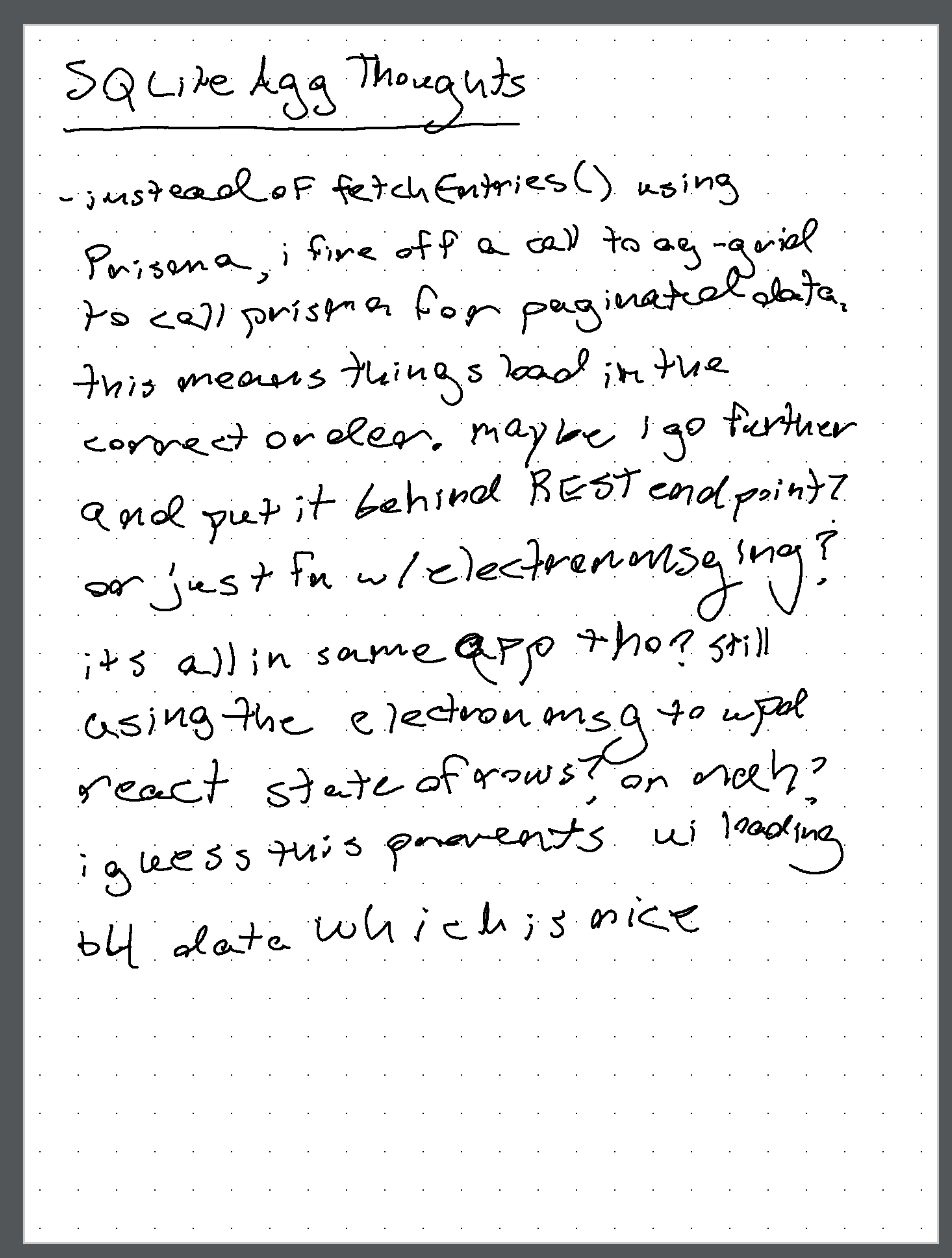 SQLite Agg Thoughts
- instead of fetchEntries() using
Prisma, i fire off a call to ag-grid
to call prisma for paginated data.
this means things load in the
correct order. maybe i go further
and put it behind REST endpoint?
or just fn w/ electron msging?
its all in same app tho? still
using the electron msg to upd
react state of rows? or nah?
i guess this prevents ui loading
b4 data which is nice